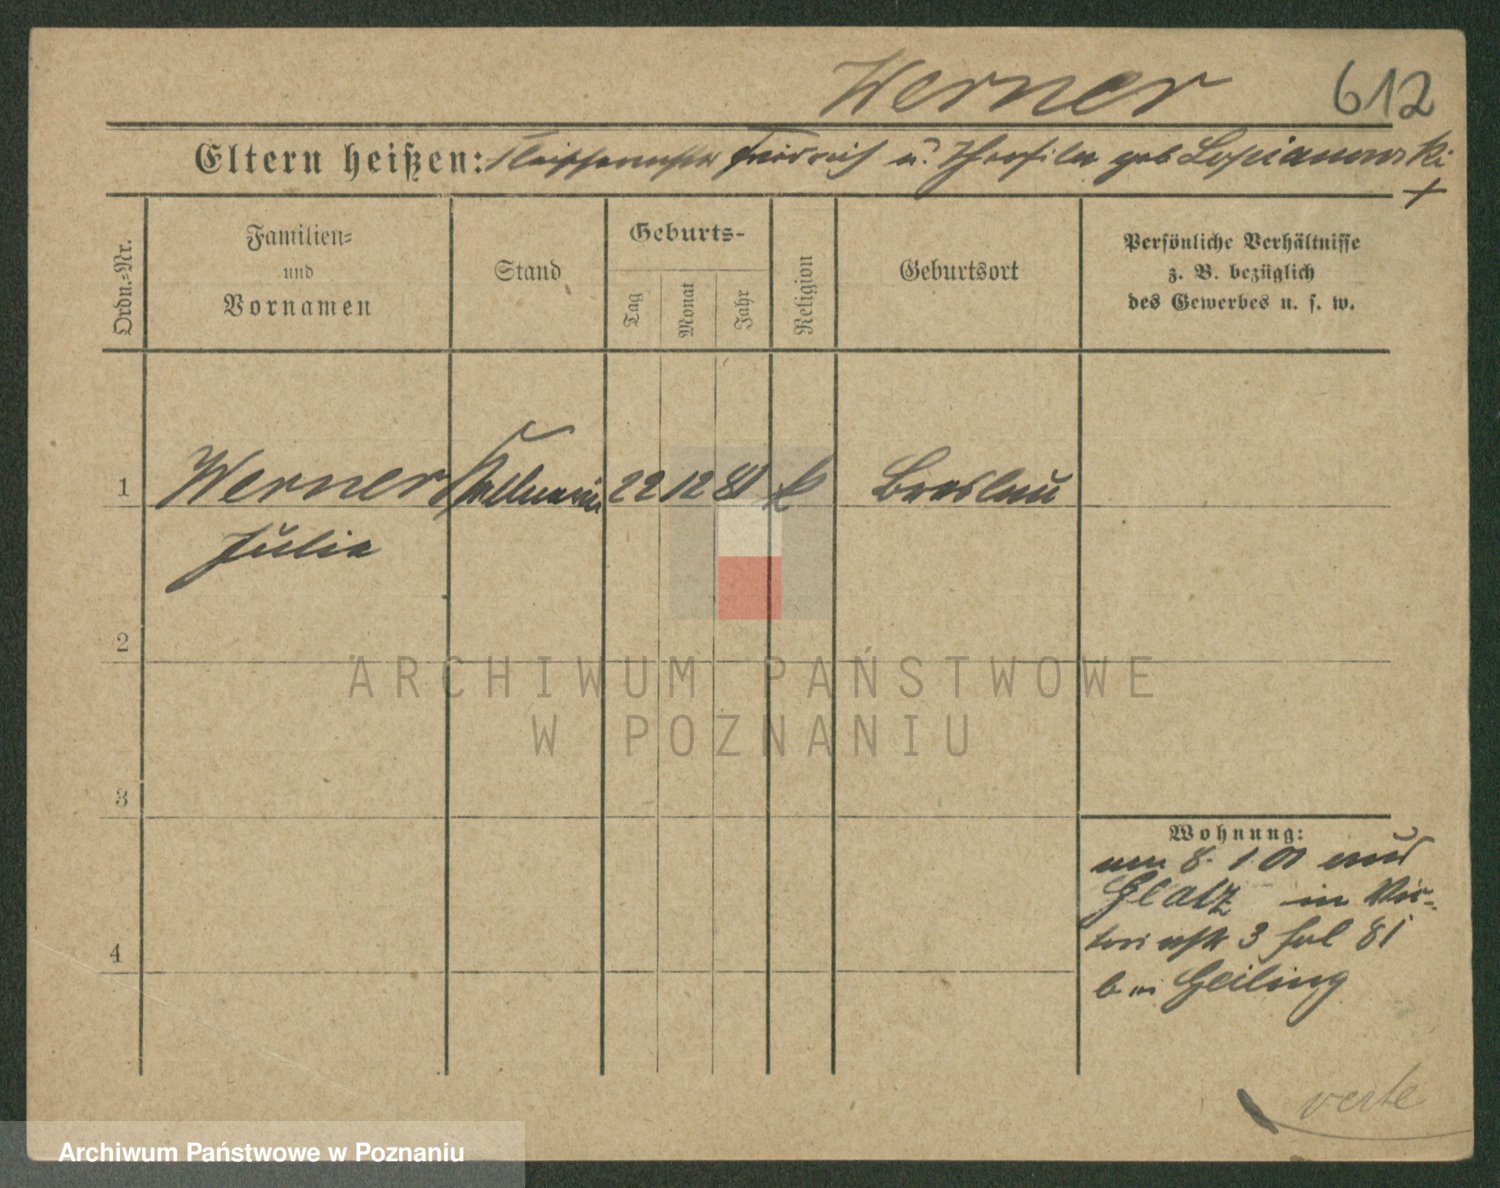 Werner 612
Eltern heißen: Friedrich u. Theofila geb Lopianowski
+
Ordn.-Nr.
Familien-
und
Vornamen
Stand
Geburts-
Tag
Monat
Jahr
Religion
Geburtsort
Persönliche Verhältnisse
z. B. bezüglich
des Gewerbes u. s. w.
1 Werner Kellnerin 22 12 81 k Breslau
Julia
2
3
4
Wohnung:
am 8. 1 01 aus
Glatz in Vic-
toriastr 3 81
bei Geiling
verte
ARCHIWUM PAŃSTWOWE
W POZNANIU
Archiwum Państwowe w Poznaniu